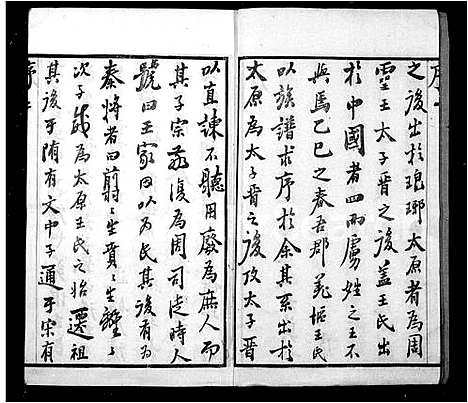 序
之後出於琅琊太原者為周
靈王太子晉之後蓋王氏出
於中國者四而虜姓之王不
與焉乙巳之春吾郡 王氏
以族譜求序於余其系出於
太原為太子晉之後攷太子晉
以直諫不聽用廢為庶人而
其子宗敬復為周司徒時人
號曰王家因以為氏其後有為
秦將者曰翦翦生賁賁生離離
次子威為太原王氏之始遷祖
其後于隋有文中子通于宋有
序